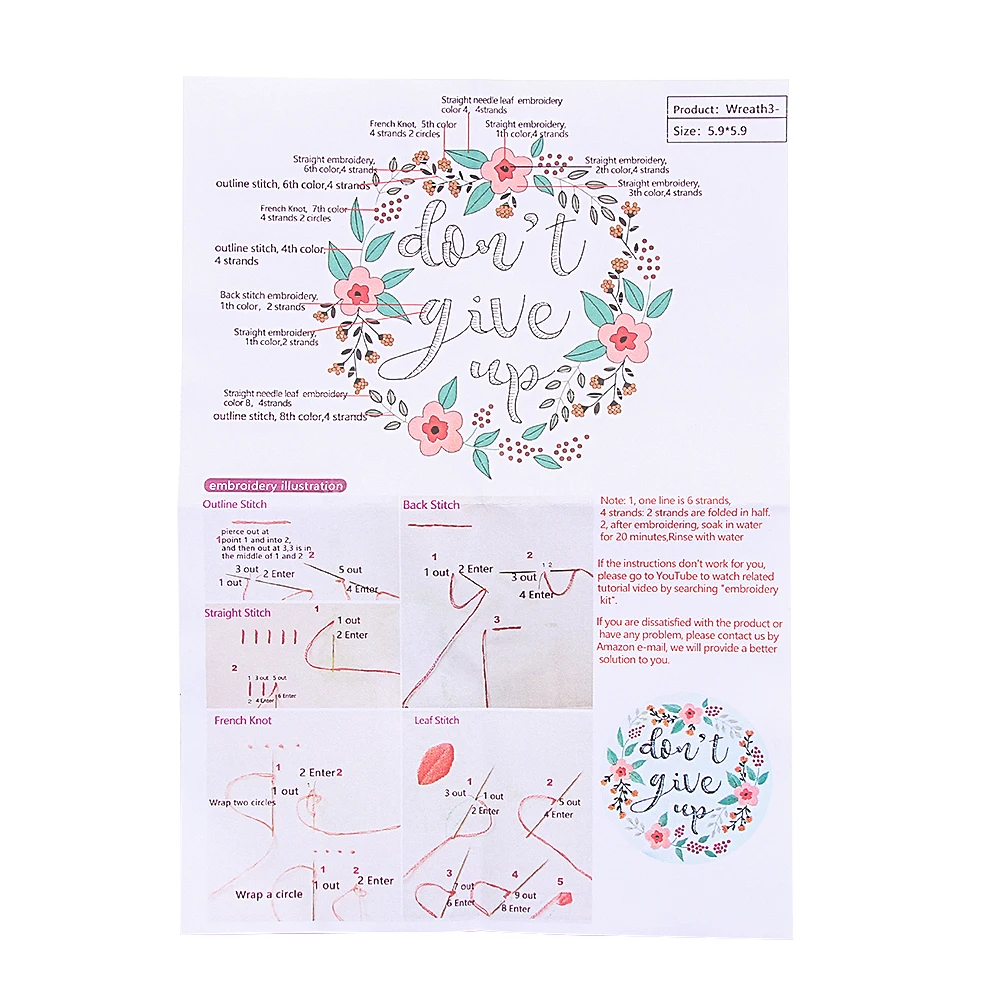 Straight needle leaf embroidery
color 4, 4strands
French Knot, 5th color
4 strands 2 circles
Straight embroidery,
1th color,4 strands
Product: Wreath3-
Size: 5.9*5.9
Straight embroidery,
6th color,4 strands
Straight embroidery,
2th color,4 strands
outline stitch, 6th color,4 strands
Straight embroidery,
3th color,4 strands
French Knot, 7th color
4 strands 2 circles
outline stitch, 4th color,
4 strands
Back stitch embroidery,
1th color, 2 strands
Straight embroidery,
1th color,2 strands
Straight needle leaf embroidery
color 8, 4strands
outline stitch, 8th color,4 strands
don't
give
up
embroidery illustration
Outline Stitch
pierce out at
1 point 1 and into 2,
and then out at 3,3 is in
the middle of 1 and 2
2
3 out
2 Enter
1 out
5 out
4 Enter
Back Stitch
1
1 out
2 Enter
2
3 out
1 2
4 Enter
3
Straight Stitch
1
1 out
2 Enter
2
1 3 out 5 out
2 4 Enter 6 Enter
French Knot
1
1 out
2 Enter 2
Wrap two circles
1
1 out
2
2 Enter
Wrap a circle
Leaf Stitch
1
3 out
1 out
2 Enter
2
5 out
4 Enter
3
7 out
6 Enter
4
9 out
8 Enter
5
Note: 1, one line is 6 strands,
4 strands: 2 strands are folded in half.
2, after embroidering, soak in water
for 20 minutes,Rinse with water
If the instructions don't work for you,
please go to YouTube to watch related
tutorial video by searching "embroidery
kit".
If you are dissatisfied with the product or
have any problem, please contact us by
Amazon e-mail, we will provide a better
solution to you.
don't
give
up